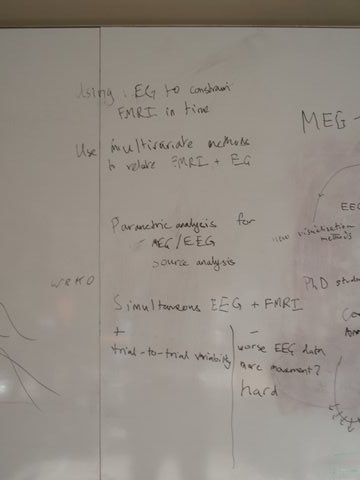 Using EEG to constrain
FMRI in time
Use multivariate methods
to relate FMRI + EEG
Parametric analysis for
- MEG/EEG
source analysis
Simultaneous EEG + FMRI
+
trial-to-trial variability
-
worse EEG data
more movement?
hard
MEG -
EEG
new visualisation
methods
PhD stude
Co